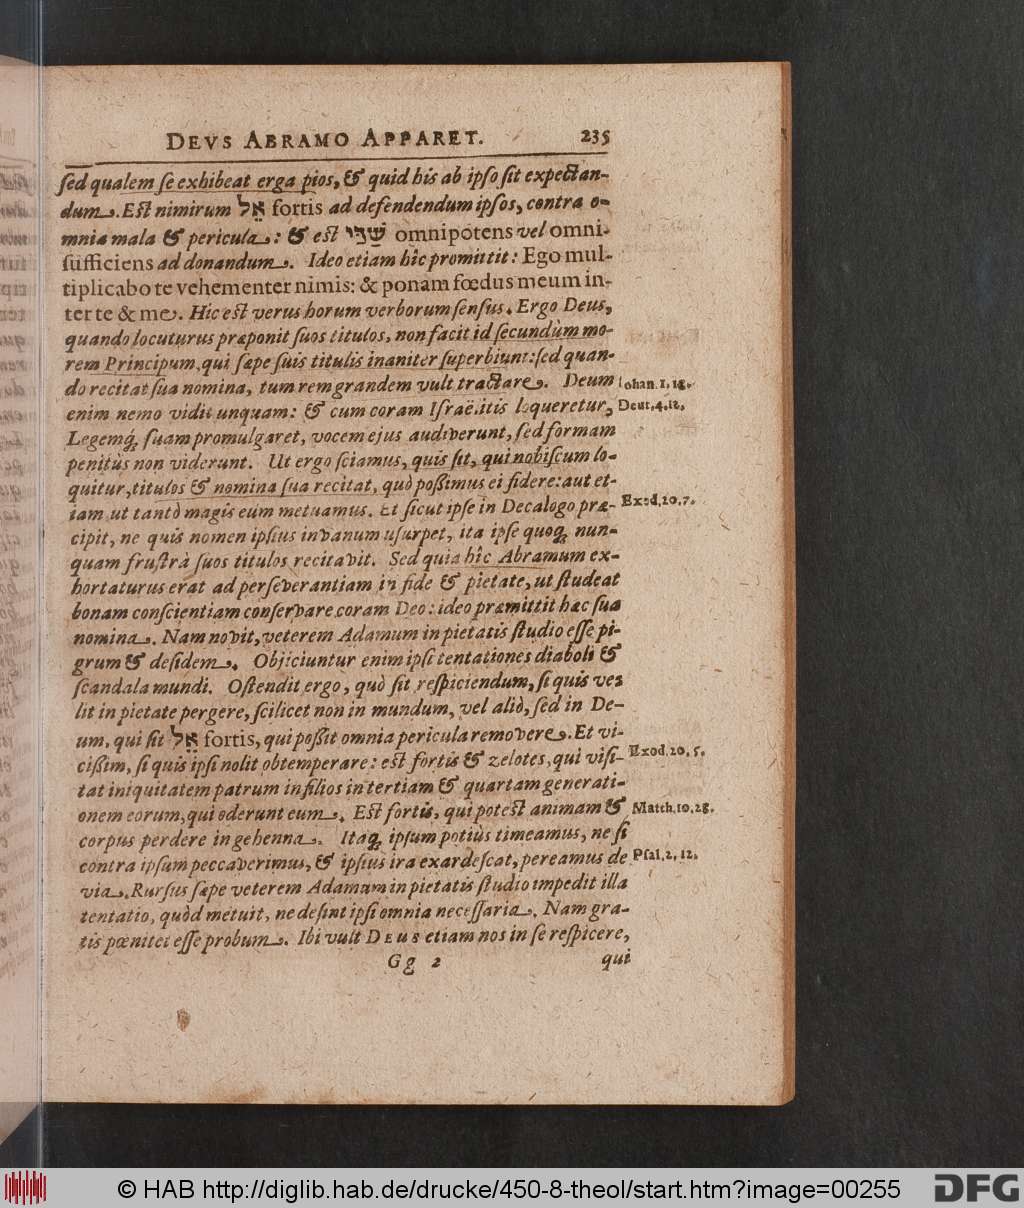 DEVS ABRAMO APPARET. 235
ſed qualem ſe exhibeat erga pios, & quid his ab ipſo ſit expectan-
dum. Eſt nimirum אֵל fortis ad defendendum ipſos, contra o-
mnia mala & pericula: & eſt שַׁדַּי omnipotens vel omni-
ſufficiens ad donandum. Ideo etiam hîc promittit: Ego mul-
tiplicabo te vehementer nimis: & ponam fœdus meum in-
ter te & me. Hic eſt verus horum verborum ſenſus. Ergo Deus,
quando locuturus præponit ſuos titulos, non facit id ſecundùm mo-
rem Principum, qui ſæpe ſuis titulis inaniter ſuperbiunt: ſed quan-
do recitat ſua nomina, tum rem grandem vult tractare. Deum Iohan. 1, 18.
enim nemo vidit unquam: & cum coram Iſraëlitis loqueretur, Deut. 4, 12.
Legemq́; ſuam promulgaret, vocem ejus audiverunt, ſed formam
penitùs non viderunt. Ut ergo ſciamus, quis ſit, qui nobiſcum lo-
quitur, titulos & nomina ſua recitat, quò poßimus ei fidere: aut et-
iam ut tantò magis eum metuamus. Et ſicut ipſe in Decalogo præ- Exod. 20, 7.
cipit, ne quis nomen ipſius in vanum uſurpet, ita ipſe quoq; nun-
quam fruſtrà ſuos titulos recitavit. Sed quia hîc Abramum ex-
hortaturus erat ad perſeverantiam in fide & pietate, ut ſtudeat
bonam conſcientiam conſervare coram Deo: ideo præmittit hæc ſua
nomina. Nam novit, veterem Adamum in pietatis ſtudio eſſe pi-
grum & deſidem. Objiciuntur enim ipſi tentationes diaboli &
ſcandala mundi. Oſtendit ergo, quò ſit reſpiciendum, ſi quis ve-
lit in pietate pergere, ſcilicet non in mundum, vel aliò, ſed in De-
um, qui ſit אֵל fortis, qui poßit omnia pericula removere. Et vi-
cißim, ſi quis ipſi nolit obtemperare: eſt fortis & zelotes, qui viſi- Exod. 20, 5.
tat iniquitatem patrum in filios in tertiam & quartam generati-
onem eorum, qui oderunt eum. Eſt fortis, qui poteſt animam & Matth. 10. 28.
corpus perdere in gehenna. Itaq; ipſum potiùs timeamus, ne ſi
contra ipſum peccaverimus, & ipſius ira exardeſcat, pereamus de Pſal. 2, 12.
via. Rurſus ſæpe veterem Adamum in pietatis ſtudio impedit illa
tentatio, quòd metuit, ne deſint ipſi omnia neceſſaria. Nam gra-
tis pœnitet eſſe probum. Ibi vult DEUS etiam nos in ſe reſpicere,
Gg 2 qui
© HAB http://diglib.hab.de/drucke/450-8-theol/start.htm?image=00255 DFG